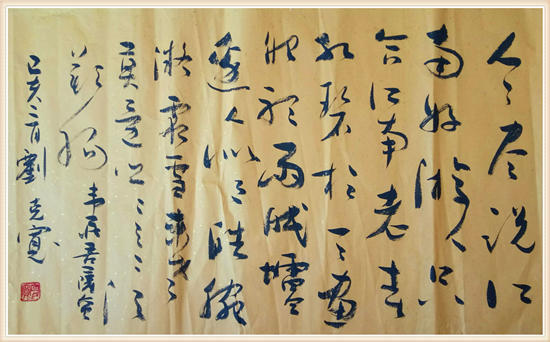 人々尽说江
南好游人只
合江南老春
水碧於天画
船听雨眠壚
边人似月皓腕
凝霜雪未老
莫还乡还乡须
断肠 韦庄菩萨蛮
己亥二月 劉克寬